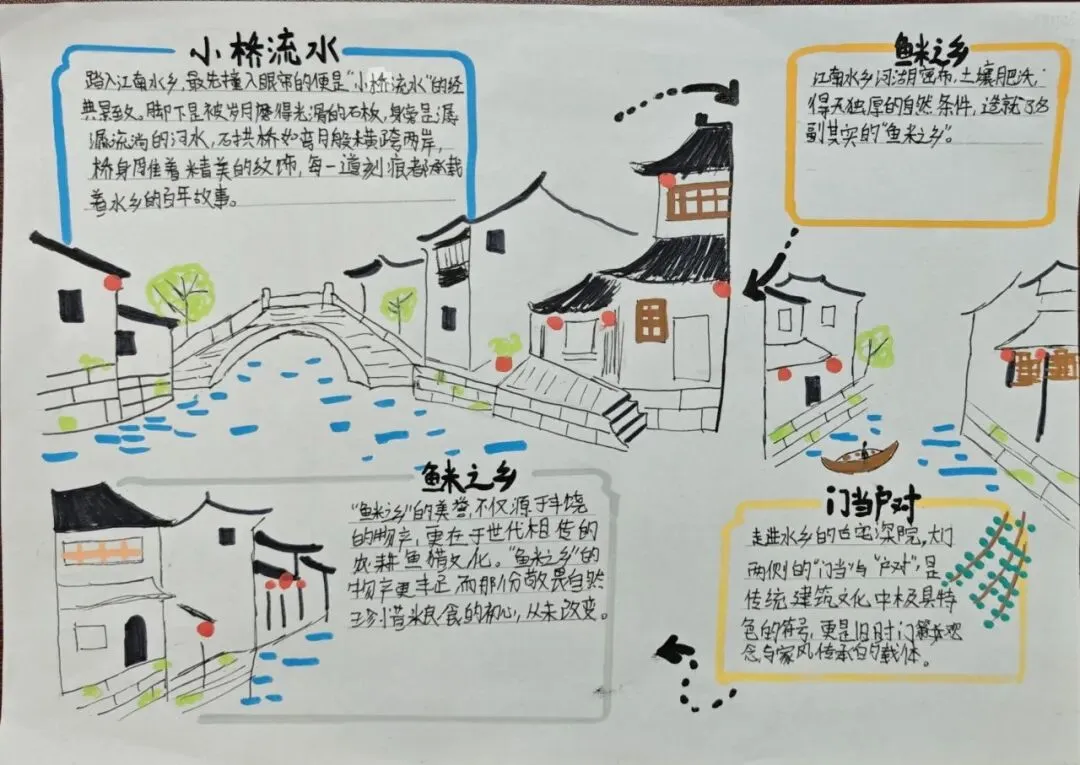 小桥流水
踏入江南水乡,最先撞入眼帘的便是"小桥流水"的经
典景致。脚下是被岁月磨得光滑的石板,身旁是潺
潺流淌的河水,石拱桥如弯月般横跨两岸,
桥身雕着精美的纹饰,每一道刻痕都承载
着水乡的百年故事。
鱼米之乡
江南水乡河湖密布,土壤肥沃,
得天独厚的自然条件,造就了名
副其实的"鱼米之乡"。
鱼米之乡
"鱼米之乡"的美誉,不仅源于丰饶
的物产,更在于世代相传的
农耕鱼猎文化。"鱼米之乡"的
物产更丰足,而那份敬畏自然
珍惜粮食的初心,从未改变。
门当户对
走进水乡的古宅深院,大门
两侧的"门当"与"户对",是
传统建筑文化中极具特
色的符号,更是旧时门第观
念与家风传承的载体。